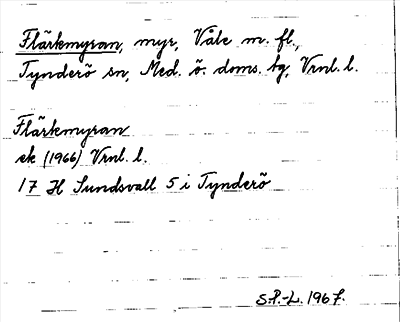 Flärkmyran, myr, Våle m. fl.,
Tynderö sn, Med. ö. doms. tg, Vrnl. l.
Flärkmyran
ek (1966) Vrnl. l.
17 H Sundsvall 5 i Tynderö
S.P.-L. 1967.